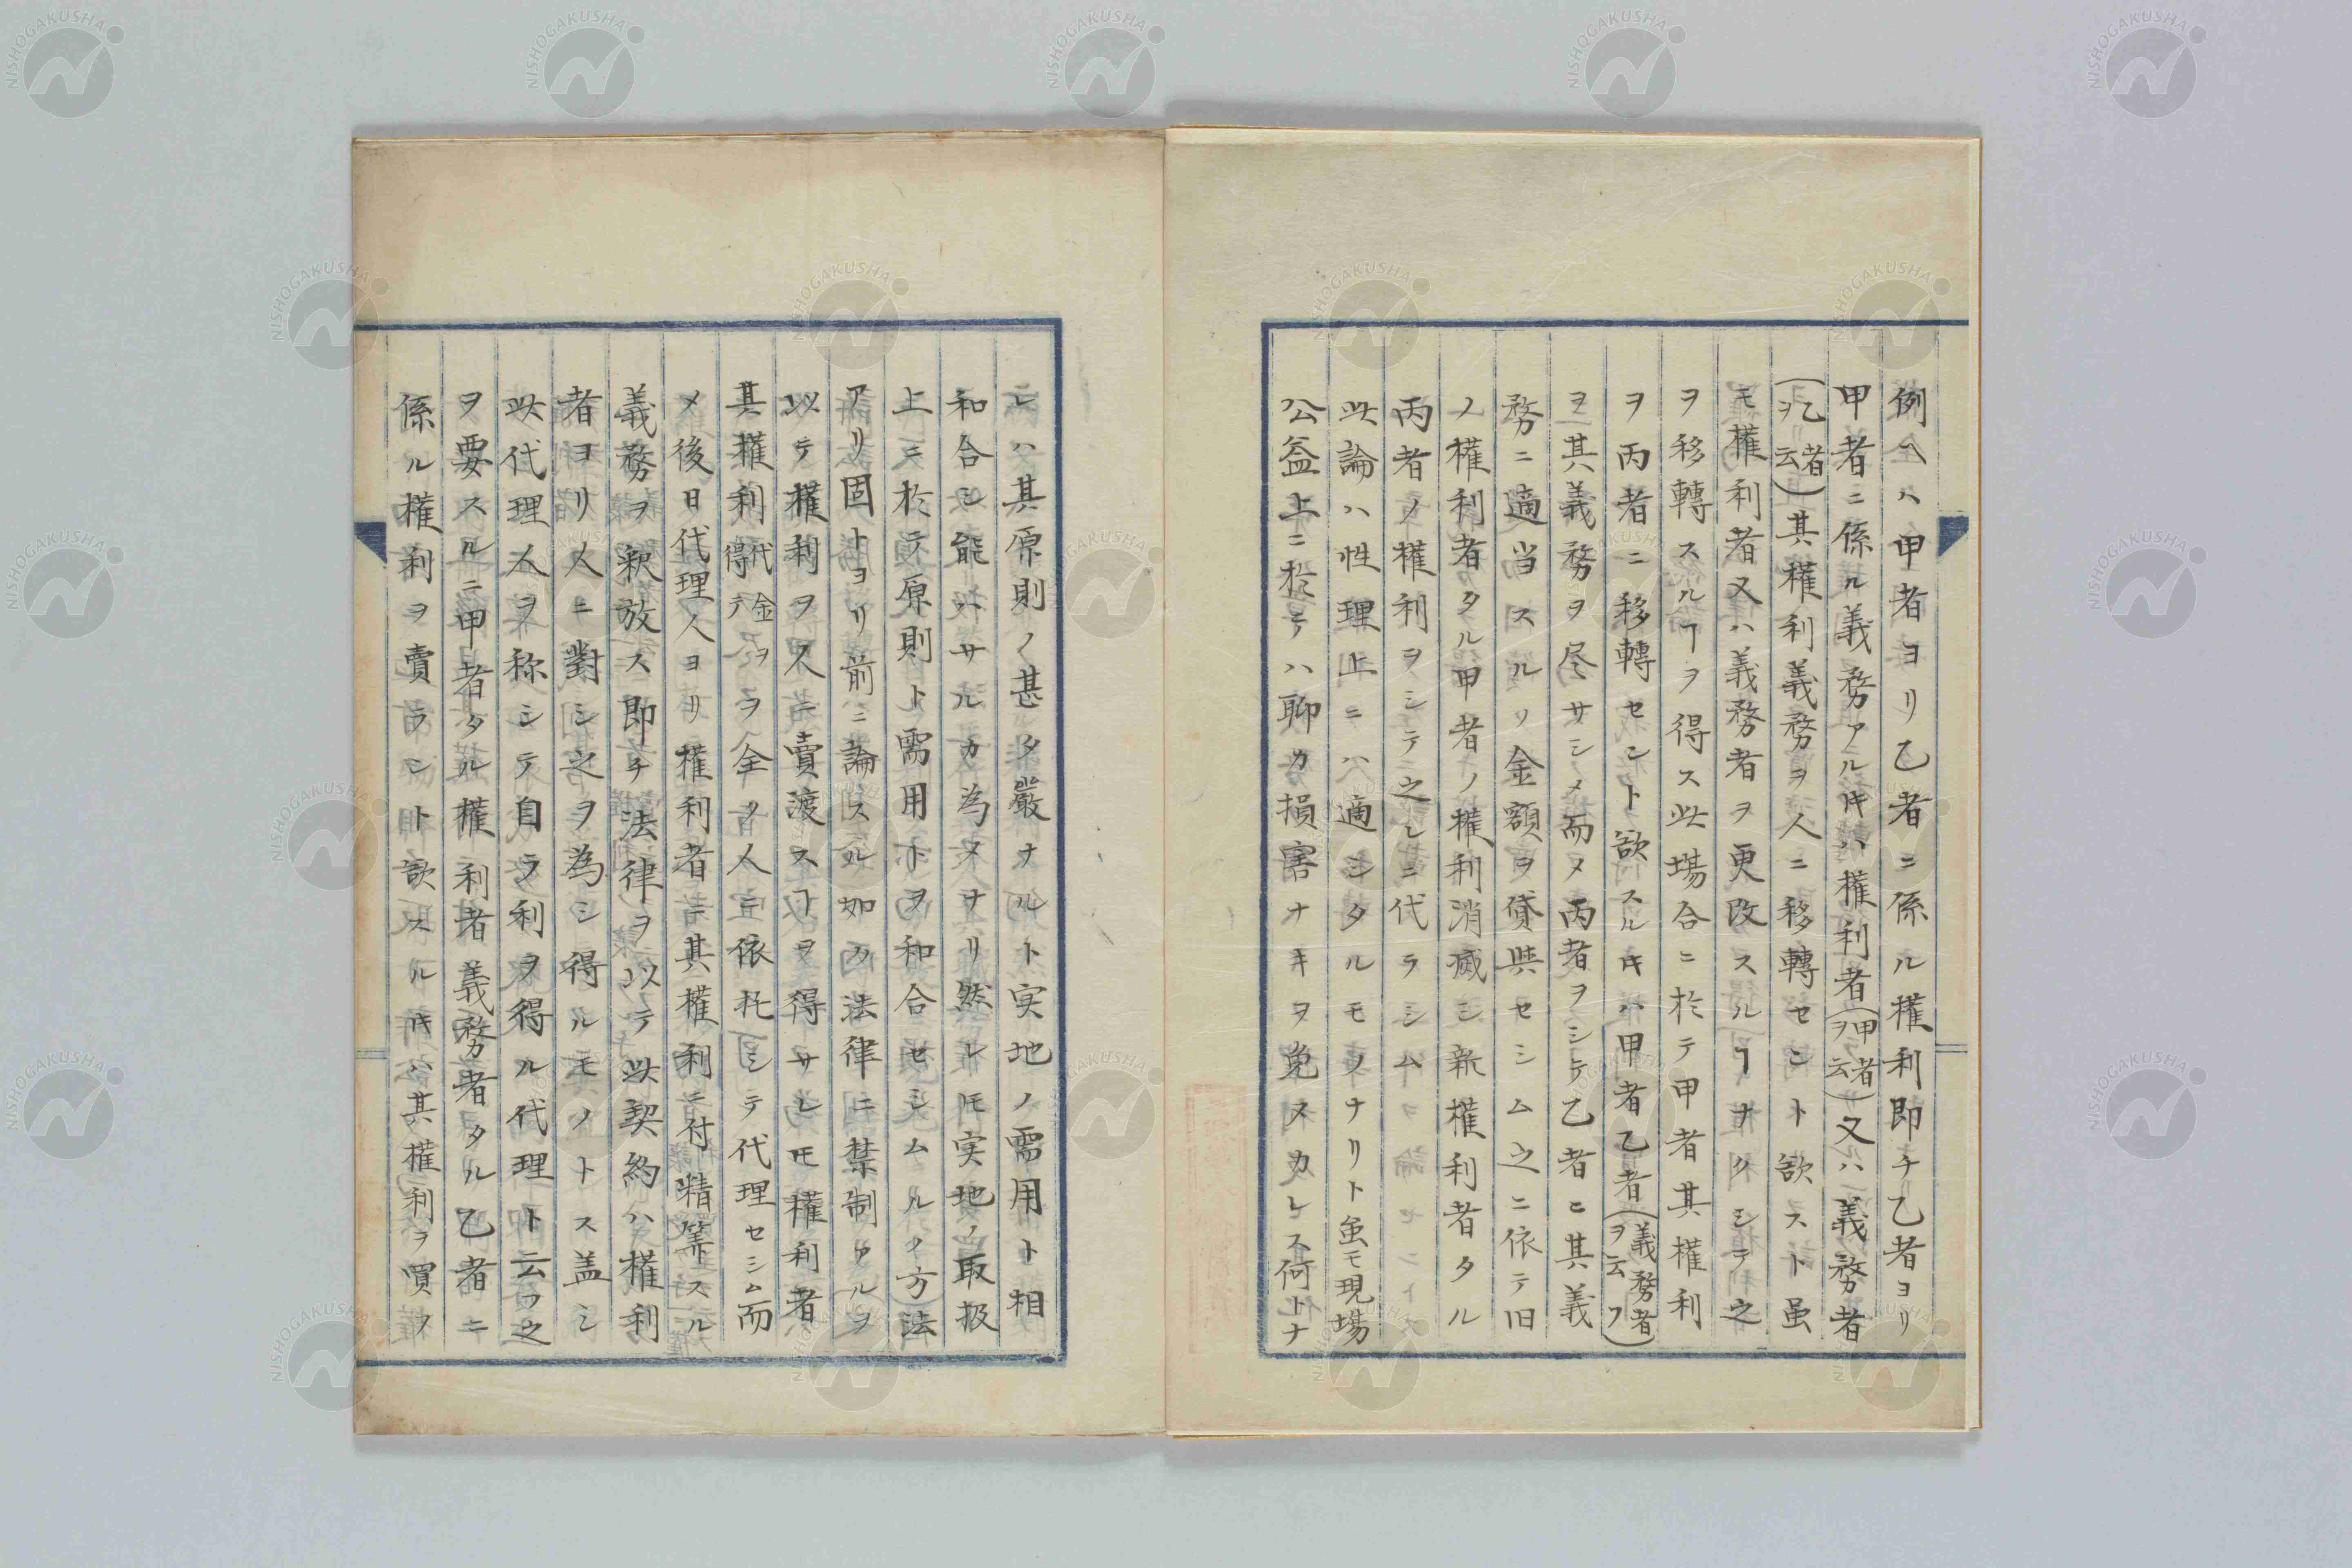 例ヘハ甲者ヨリ乙者ニ係ル權利即チ乙者ヨリ
甲者ニ係ル義務アルヰハ權利者(甲者ヲ云)又ハ義務者
(乙者ヲ云)其權利義務ヲ人ニ移轉セント欲スト虽
モ權利者又ハ義務者ヲ更改スルヿナクシテ之
ヲ移轉スルヿヲ得ス此場合ニ於テ甲者其權利
ヲ丙者ニ移轉セント欲スルキハ甲者乙者(義務者ヲ云フ)
ヲ其義務ヲ尽サシメ而メ丙者ヲシテ乙者ニ其義
務ニ適当スルノ金額ヲ貸與セシム之ニ依テ旧
ノ權利者タル甲者ノ權利消滅シ新權利者タル
丙者ノ權利ヲシテ之レニ代ラシム
此論ハ性理上ニハ適シタルモノナリト虽モ現場
公益上ニ於テハ聊カ損害ナキヲ免ヌカレス何トナ
レハ其原則ノ甚タ嚴ナルト実地ノ需用ト相
和合シ能ハサルカ為メナリ然レ𪜈実地ノ取扱
上ニ於テ原則ト需用トヲ和合セシムルノ方法
アリ固トヨリ前ニ論スル如ク法律ニ禁制アルヲ
以テ權利ヲ人ニ賣渡スヿヲ得サレ𪜈權利者
其權利代金ヲ得テヲ全ク人ニ依托シテ代理セシム而
メ後日代理人ヨリ權利者ニ其權利ニ付精筭スル
義務ヲ釈放ス即チ法律ヲ以テ此契約ハ權利
者ヨリ人ニ對シ之ヲ為シ得ルモノトス盖シ
此代理人ヲ称シテ自ラ利ヲ得ル代理ト云フ之
ヲ要スルニ甲者タル權利者義務者タル乙者ニ
係ル權利ヲ賣ラント欲スルキハ其權利ヲ買フ
NISHOGAKUSHA